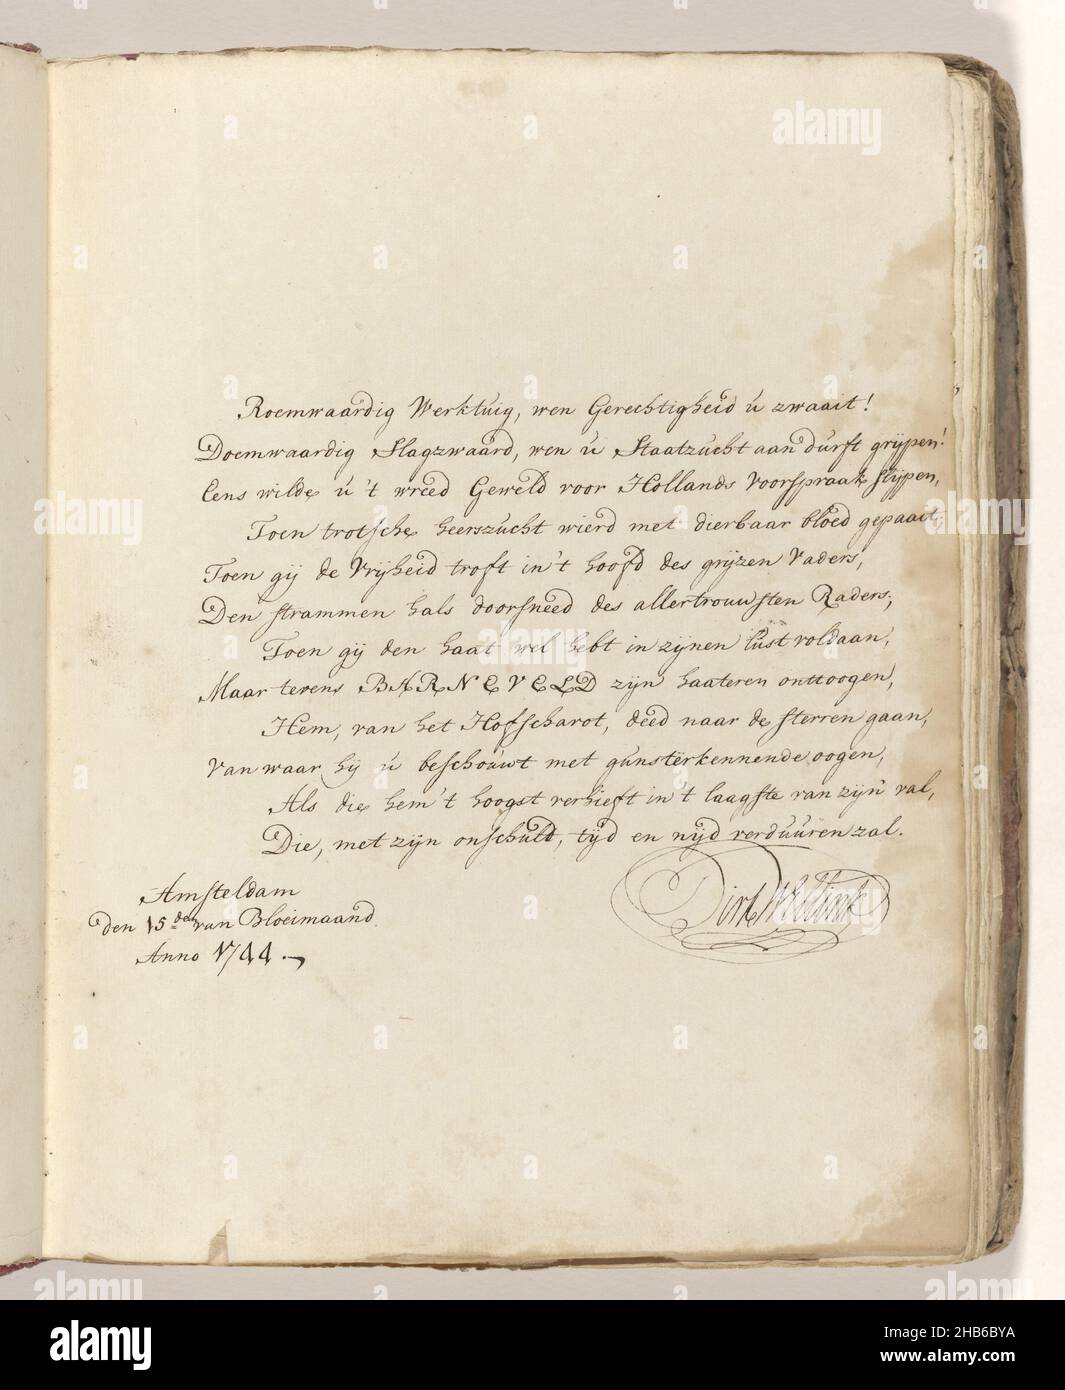 Roemwaardig Werktuig, wen Gerechtigheid ú zwaait!
Doemwaardig Slagzwaard, wen ú Staatzucht aan dúrft grijpen!
Eens wilde ú 't wreed Geweld voor Hollands Voorspraak slijpen,
Toen trotsche heerszucht wierd met dierbaar bloed gepaait;
Toen gij de Vrijheid troft in 't hoofd des grijzen Vaders,
Den strammen hals doorsneed des allertrouwsten Raders;
Toen gij den haat wel hebt in zijnen lúst voldaan,
Maar tevens BARNEVELD zijn haateren onttoogen,
Hem, van het Hofscharot, deed naar de sterren gaan,
Van waar hij ú beschouwt met gúnsterkennende oogen,
Als die hem 't hoogst verhieft in 't laagste van zijn val,
Die, met zijn onschuld, tijd en nijd verdúúren zal.
Dirk
Amsteldam
Den 15den van Bloeimaand.
Anno 1744.
alamy
Image ID: 2HB6BYA
www.alamy.com